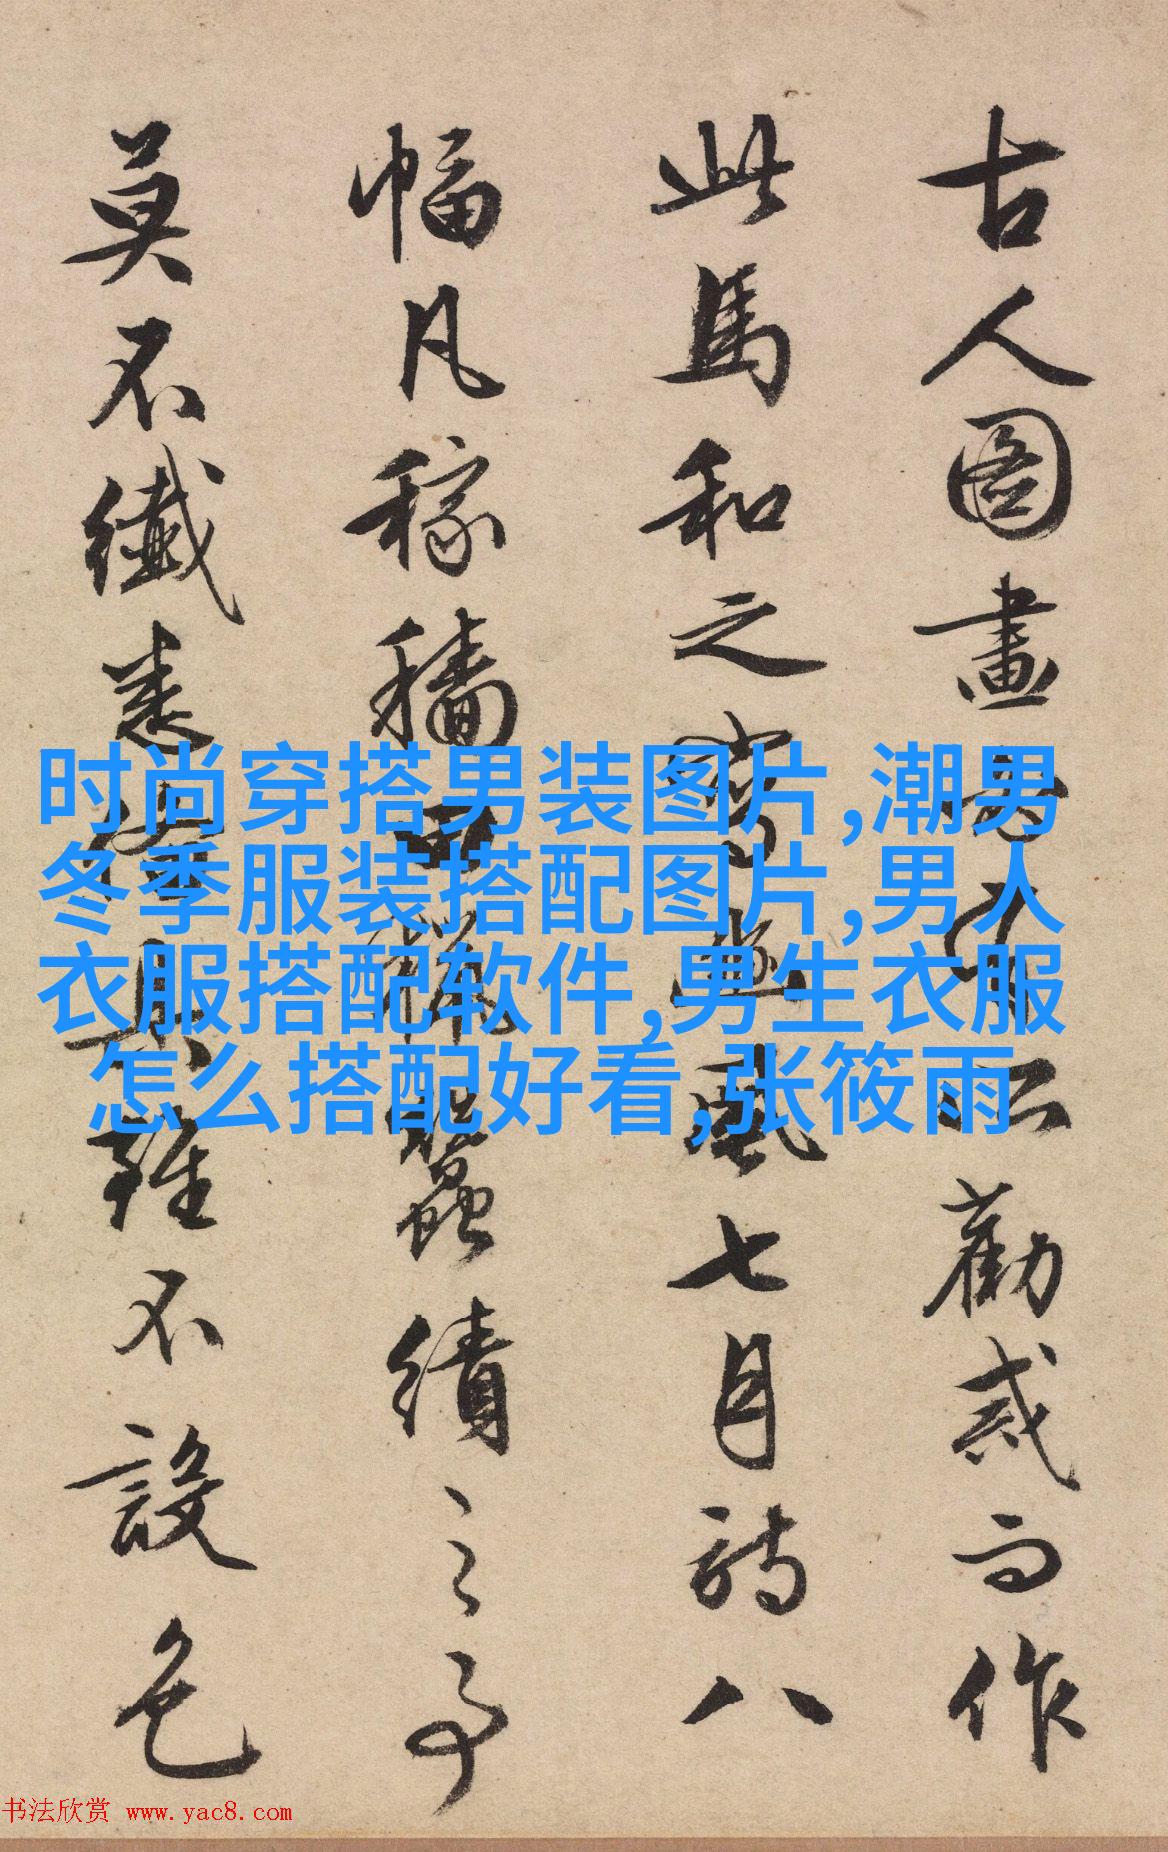 古人圖畫有所勸戒而作
此馬和之寫豳風七月詩八
幅凡稼穡田獵蠶績之事
莫不纖悉備具雖不設色
时尚穿搭男装图片,潮男
冬季服装搭配图片,男人
衣服搭配软件,男生衣服
怎么搭配好看,张筱雨
书法欣赏 www.yac8.com